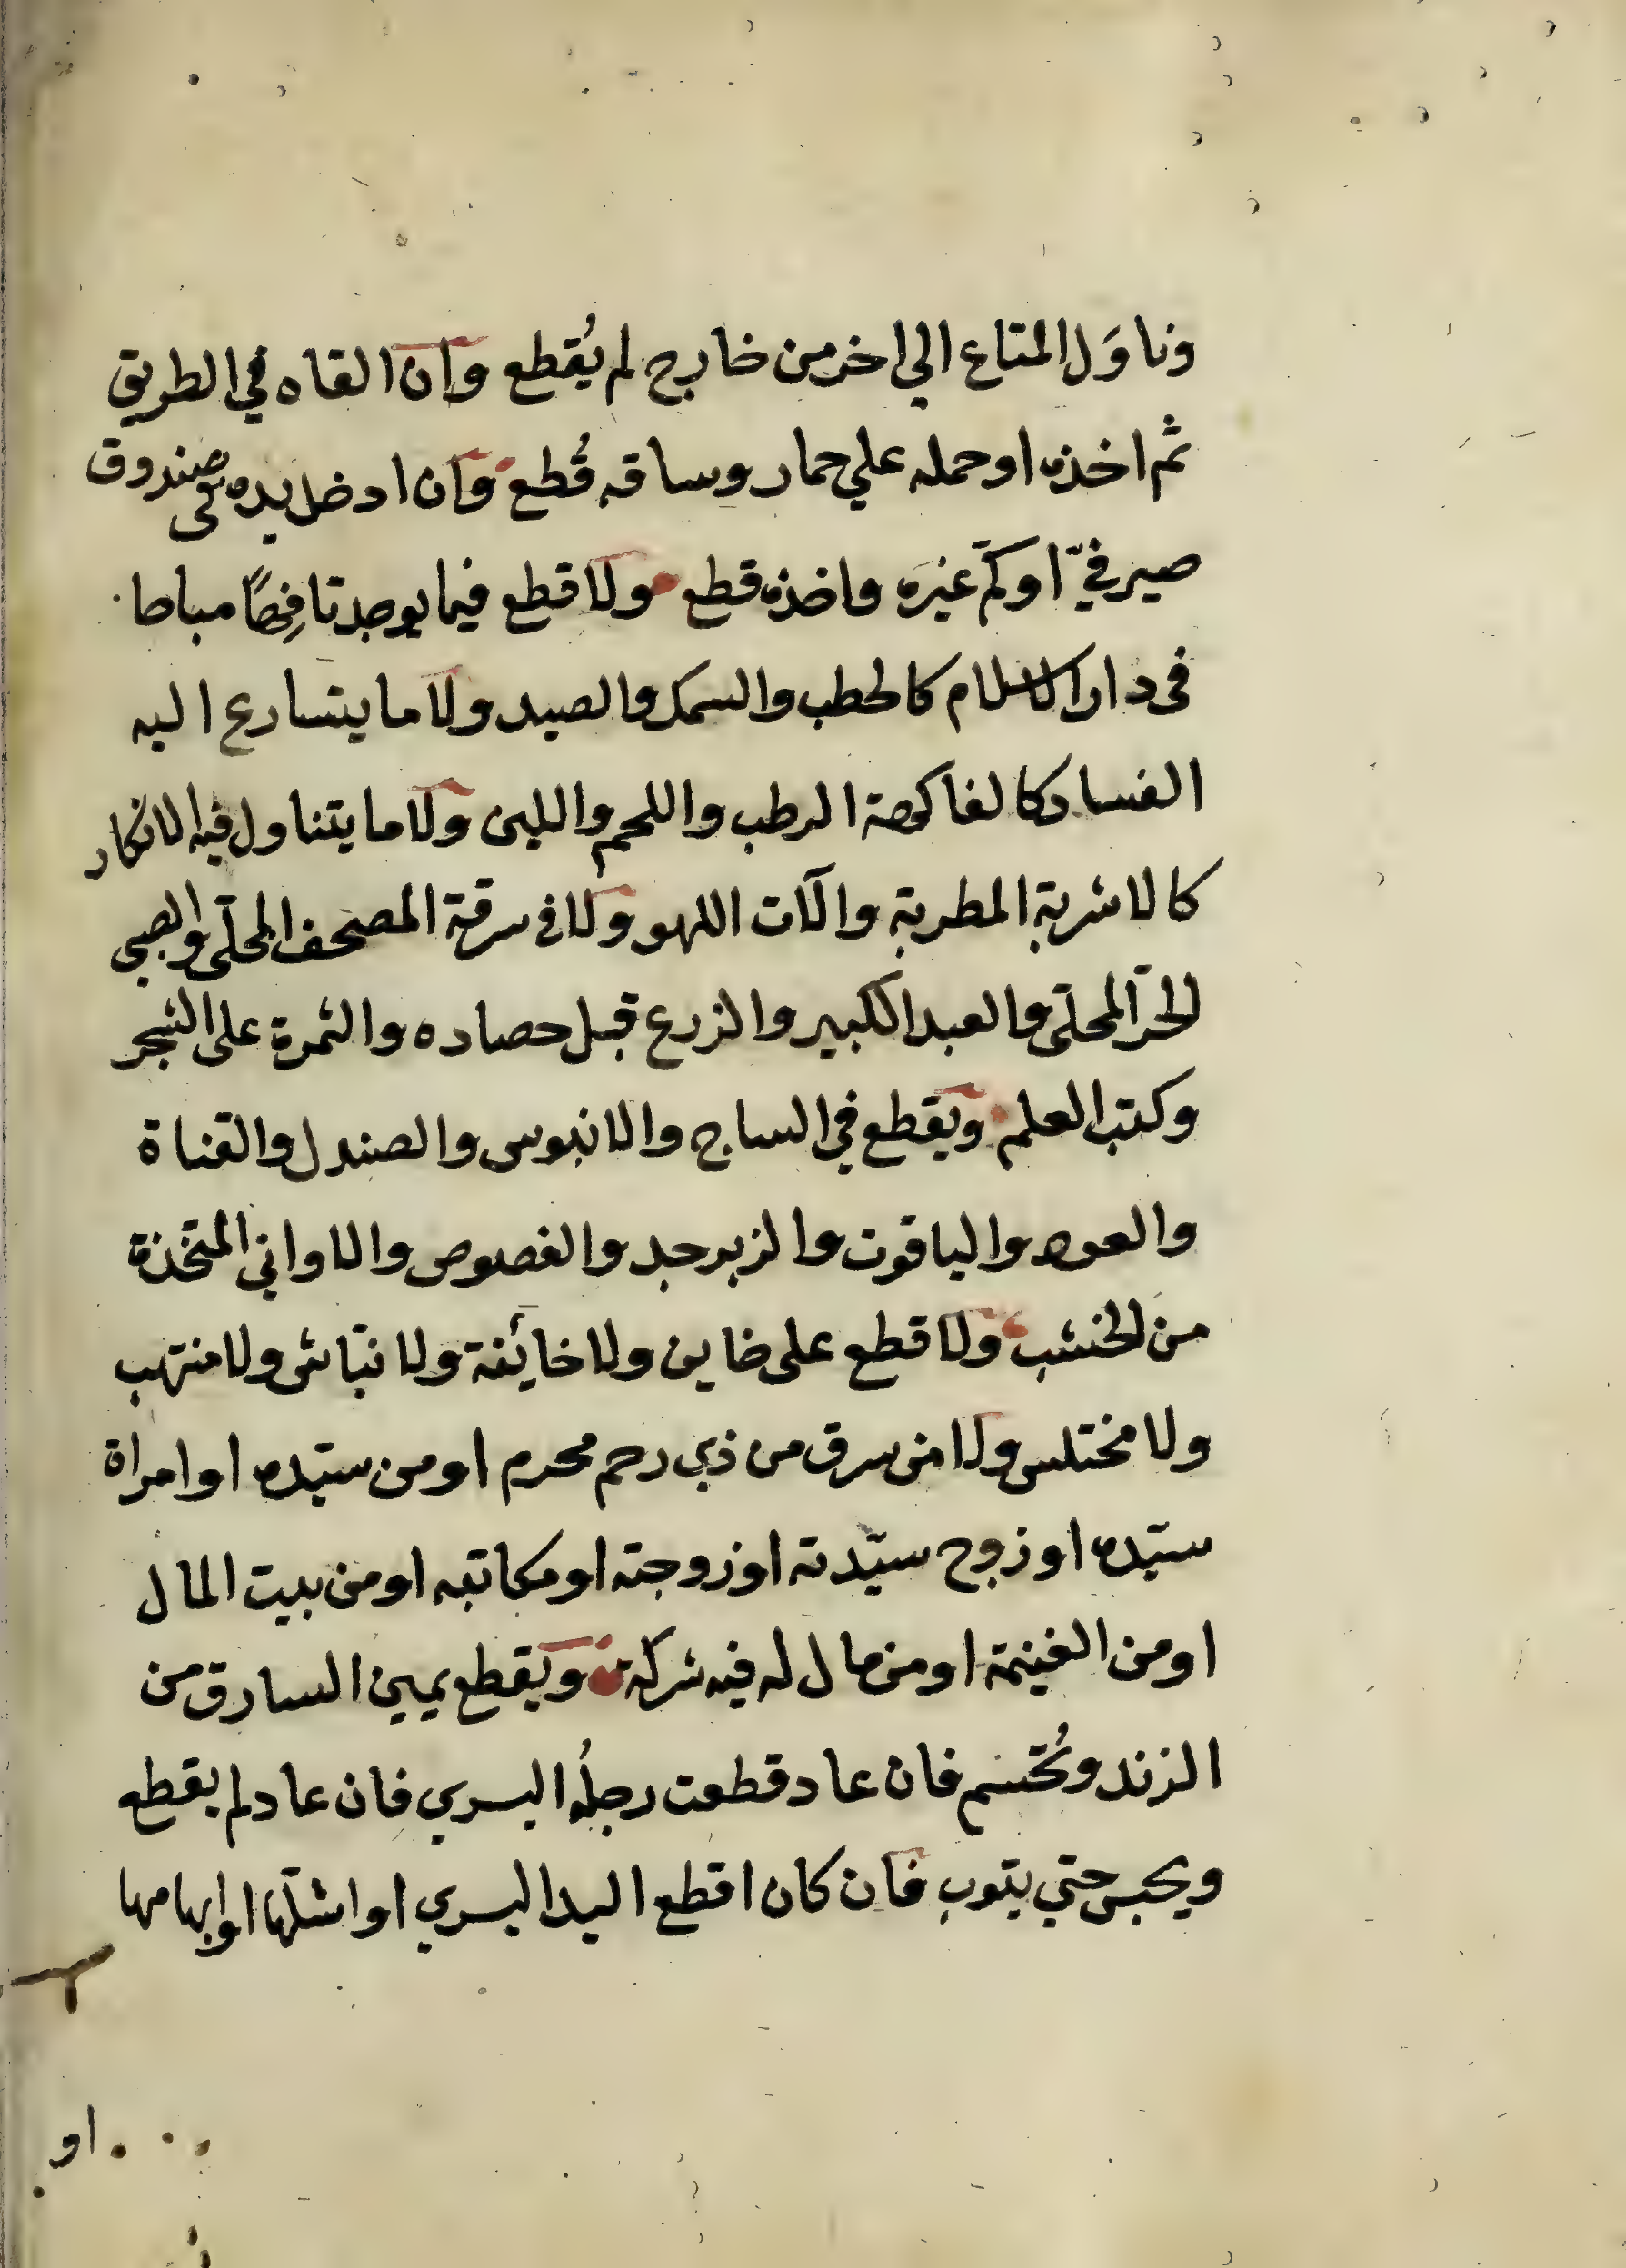 وناوَل المتاع الي اخر من خارج لم يُقطع وان القاه في الطريق
ثم اخذه او حمله علي حمار وساقه قُطع وان ادخل يده فى صندوق
صيرفيّ او كمّ غيره واخذه قطع ولا قطع فيما يوجد تافِهًا مباحا
فى دار الاسلام كالحطب والسمك والصيد ولا ما يتسارع اليه
الفساد كالفاكهة الرطب واللحم واللبن ولا ما يتناول فيه الانكار
كالاشربة المطربة والآت اللهو ولا في سرقة المصحف المحلّى والصبي
الحرّ المحلّى والعبد الكبير والزرع قبل حصاده والثمرة على الشجر
وكتب العلم ويقطع في الساج والابنوس والصندل والقناة
والعود والياقوت والزبرجد والفصوص والاواني المتخذة
من الخشب ولا قطع على خاين ولا خائنة ولا نبّاش ولا منتهب
ولا مختلس ولا من سرق من ذي رحم محرم او من سيّده او امراة
سيّده او زوج سيّدته او زوجته او مكاتبه او من بيت المال
او من الغنيمة او من مال له فيه شركة ويقطع يمين السارق من
الزند وتُحسم فان عاد قطعت رجلُه اليسري فان عاد لم يقطع
ويحبس حتي يتوب فان كان اقطع اليد اليسري او اشلّها او ابهامها
او